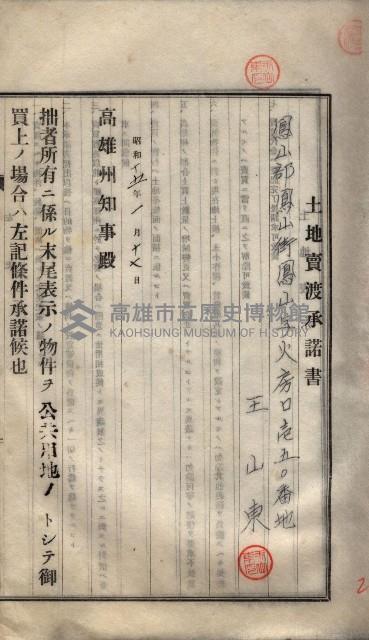 土地賣渡承諾書
鳳山郡鳳山街鳳山字火房口壱五〇番地
王山東
高雄州知事殿
昭和十五年一月十七日
拙者所有ニ係ル末尾表示ノ物件ヲ公共用地ノトシテ御
買上ノ場合ハ左記條件承諾候也
高雄市立歷史博物館
KAOHSIUNG MUSEUM OF HISTORY